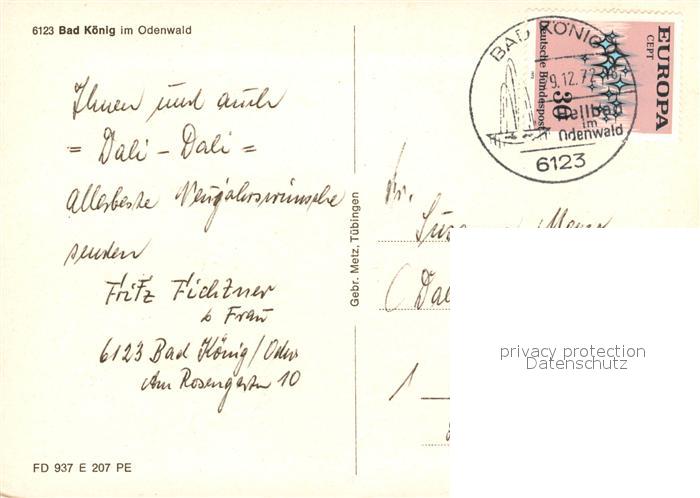 6123 Bad König im Odenwald
Ihnen und auch
= Dali - Dali =
allerbeste Neujahrswünsche
senden
Fritz Fichtner
& Frau
6123 Bad König/Odw
Am Rosengarten 10
FD 937 E 207 PE
Gebr. Metz, Tübingen
BAD KÖNIG
9.12.72
im
Odenwald
6123
EUROPA
CEPT
Deutsche Bundespost
30
Fr.
privacy protection
Datenschutz